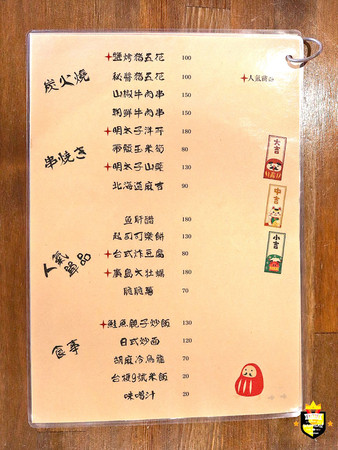 炭火燒
串焼き
✦鹽烤豬五花 100
秘醬豬五花 100
山椒牛肉串 100
朝鮮牛肉串 100
✦明太子洋芋 180
帶殼玉米筍 80
✦明太子山藥 130
北海道麻吉 90
✦人氣商品
大吉
中吉
小吉
人氣單品
魚肝醋 180
起司可樂餅 130
✦台式炸豆腐 80
✦廣島大牡蠣 180
脆脆薯 70
食事
✦鮭魚親子炒飯 130
日式炒麵 120
胡麻冷烏龍 70
台梗9號米飯 20
味噌汁 20